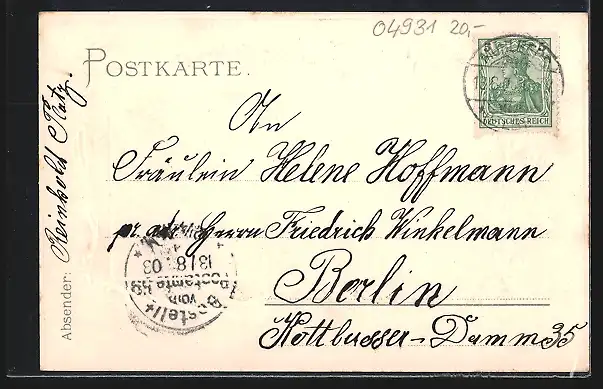 04931 20,-
POSTKARTE.
DEUTSCHES REICH
An
Fräulein Helene Hoffmann
pr. adr. Herrn Friedrich Winkelmann
Berlin
Kottbusser-Damm 35
Absender: Reinhold
Bestellt
vom
Postamte
13/8 03